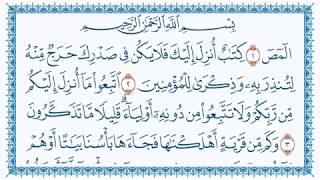 بِسْمِ اللَّهِ الرَّحْمَٰنِ الرَّحِيمِ
الٓمٓصٓ ١ كِتَٰبٌ أُنزِلَ إِلَيْكَ فَلَا يَكُن فِى صَدْرِكَ حَرَجٌ مِّنْهُ
لِتُنذِرَ بِهِۦ وَذِكْرَىٰ لِلْمُؤْمِنِينَ ٢ ٱتَّبِعُوا۟ مَآ أُنزِلَ إِلَيْكُم
مِّن رَّبِّكُمْ وَلَا تَتَّبِعُوا۟ مِن دُونِهِۦٓ أَوْلِيَآءَ ۗ قَلِيلًا مَّا تَذَكَّرُونَ
٣ وَكَم مِّن قَرْيَةٍ أَهْلَكْنَٰهَا فَجَآءَهَا بَأْسُنَا بَيَٰتًا أَوْ هُمْ